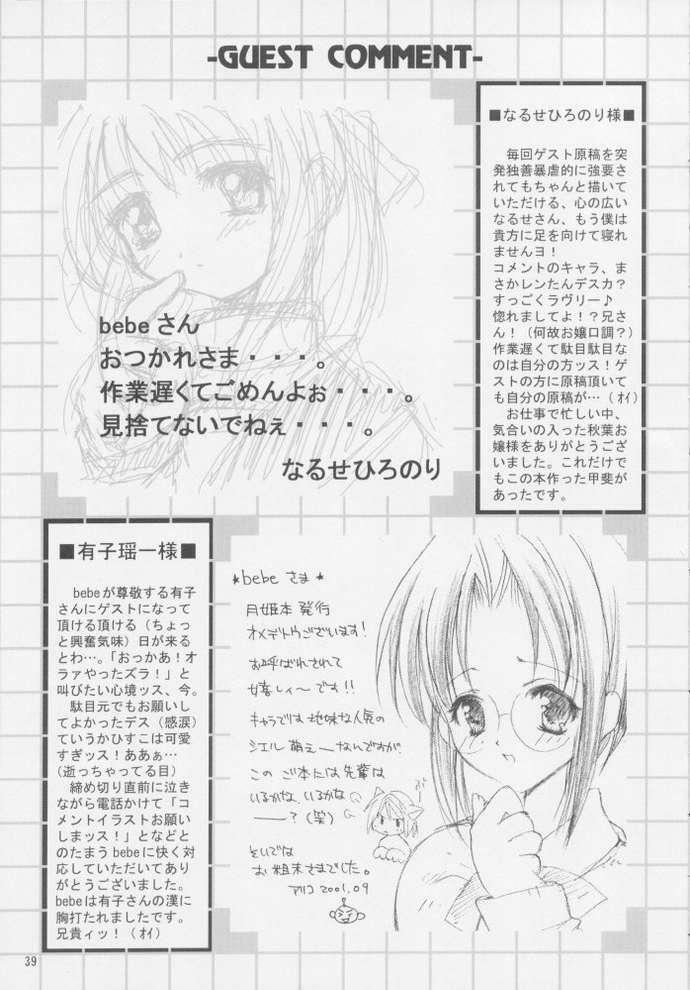 -GUEST COMMENT-
■なるせひろのり様■
毎回ゲスト原稿を突
発独善暴虐的に強要さ
れてもちゃんと描いて
いただける、心の広い
なるせさん、もう僕は
貴方に足を向けて寝れ
ませんヨ！
コメントのキャラ、ま
さかレンたんデスカ？
すっごくラヴリー♪
惚れましてよ！？兄さ
ん！（何故お嬢口調？）
作業遅くて駄目駄目な
のは自分の方ッス！ゲ
ストの方に原稿頂いて
も自分の原稿が…（ｵｲ）
お仕事で忙しい中、
気合いの入った秋葉お
嬢様をありがとうござ
いました。これだけで
もこの本作った甲斐が
あったです。
bebeさん
おつかれさま・・・。
作業遅くてごめんよぉ・・・。
見捨てないでねぇ・・・。
なるせひろのり
■有子瑶一様■
bebeが尊敬する有子
さんにゲストになって
頂ける頂ける（ちょっ
と興奮気味）日が来る
とわ…。「おっかあ！オ
ラァやったズラ！」と
叫びたい心境ッス、今。
駄目元でもお願いし
てよかったデス（感涙）
ていうかひすこは可愛
すぎッス！ああぁ…
（逝っちゃってる目）
締め切り直前に泣き
ながら電話かけて「コ
メントイラストお願い
しまッス！」となどと
のたまうbebeに快く対
応していただいてあり
がとうございました。
bebeは有子さんの漢に
胸打たれましたです。
兄貴ィッ！（ｵｲ）
*bebeさま*
月姫本発行
オメデトウございます！
お呼ばれされて
嬉しィ〜です!!
キャラでは地味な人気の
シエル萌えーなんですが
この ご本には先輩は
いるかな、いるかな
ー？（笑）
といでは
お粗末さまでした。
アリコ 2001.09
39